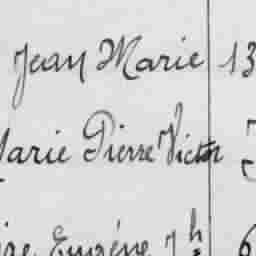 Jean Marie 13
Marie Pierre Victor
Eugène Jh 6